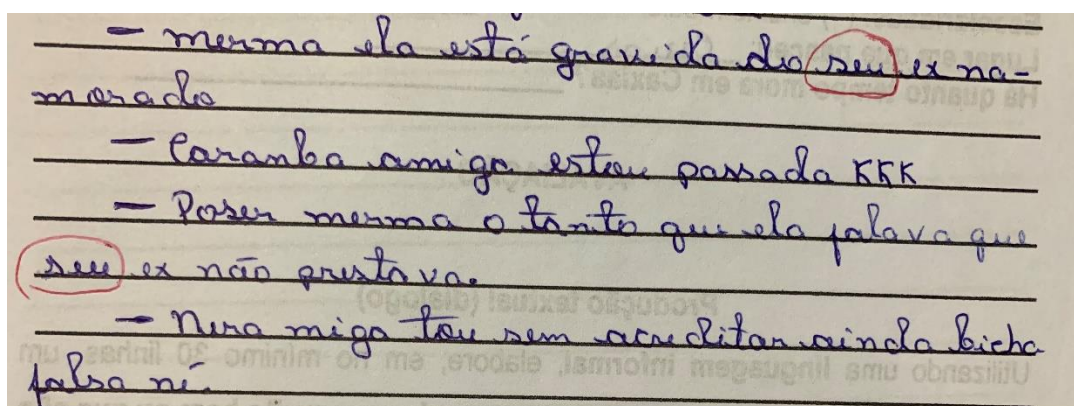 – merma ela está gravida do seu ex na-
morado
– Caramba amiga estou passada KKK
– Poser merma o tanto que ela falava que
seu ex não prestava.
– Nera miga tou sem acreditar ainda bicha
falsa né.